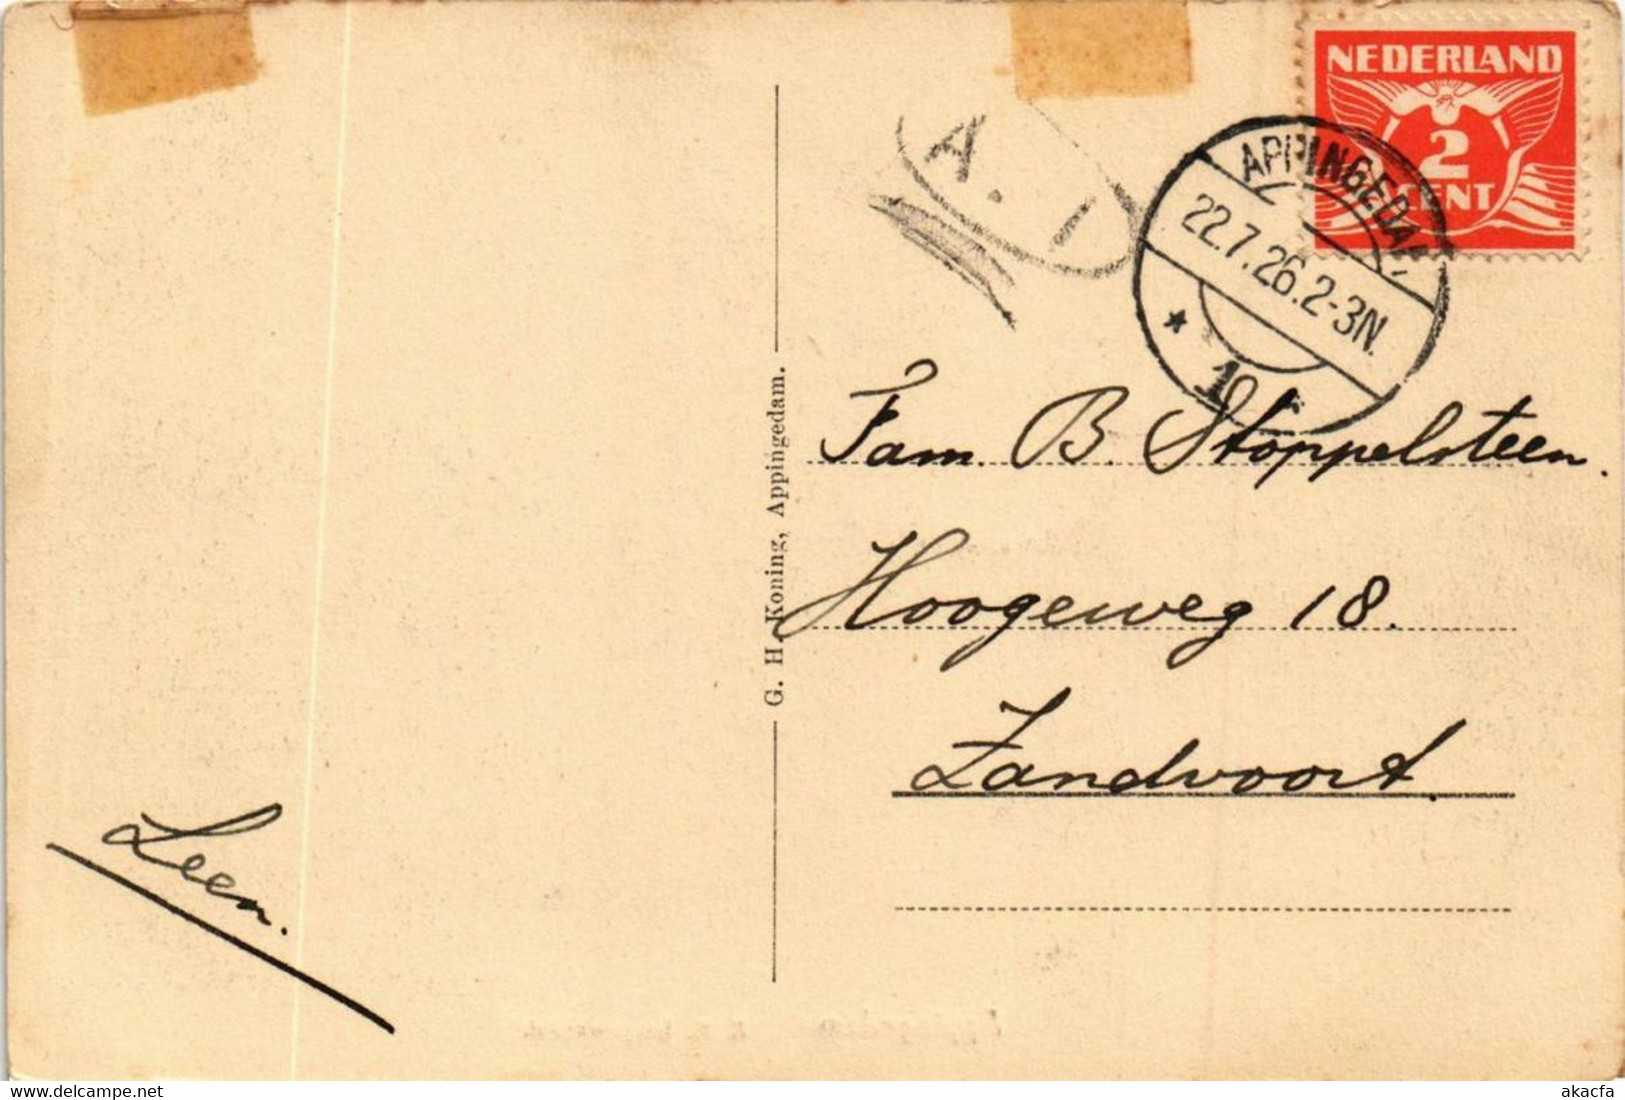 NEDERLAND
2
CENT
A. 1
APPINGEDAM
22.7.26.2-3N.
1
Fam. B. Stoppelsteen.
Hoogeweg 18.
Zandvoort.
G. H. Koning, Appingedam.
Leen.
delcampe.net
akacfa